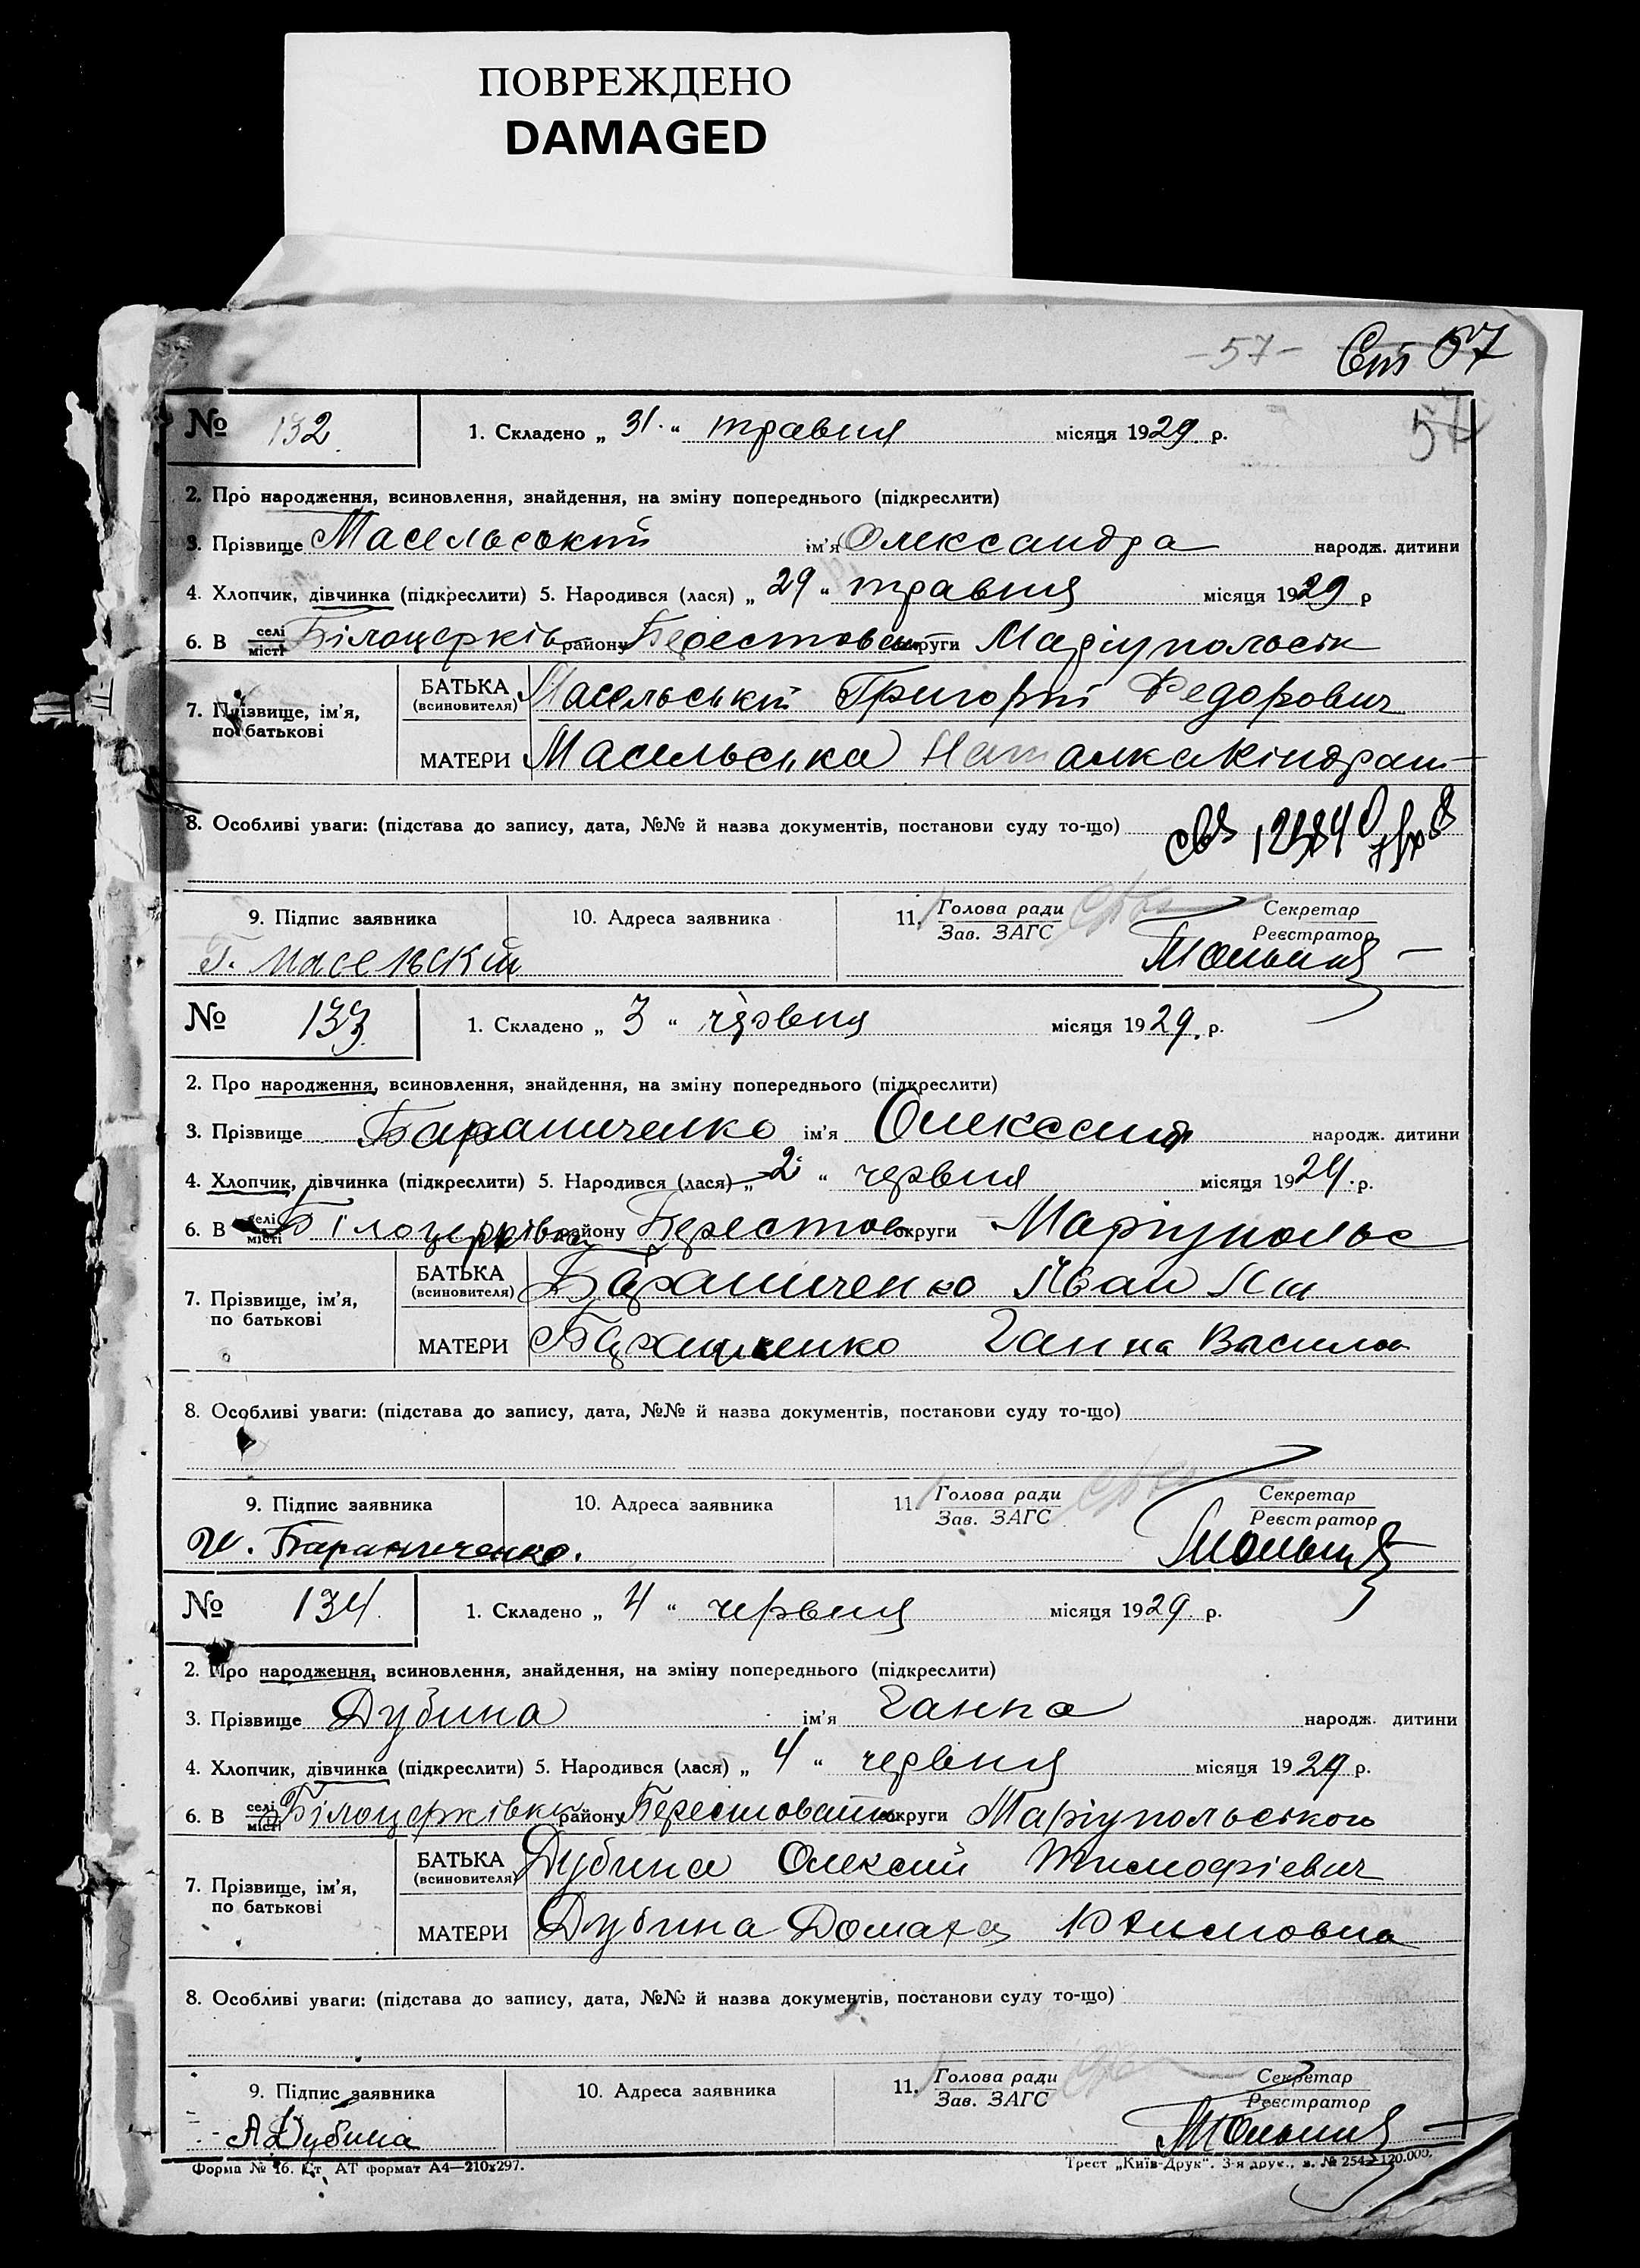 ПОВРЕЖДЕНО
DAMAGED
-57- Ст 57
57
№ 132. 1. Складено „ 31. “ травня місяця 1929 р.
2. Про народження, всиновлення, знайдення, на зміну попереднього (підкреслити)
3. Прізвище Масельський ім'я Олександра народж. дитини
4. Хлопчик, дівчинка (підкреслити) 5. Народився (лася) „ 29 “ травня місяця 1929 р
6. В селі місті Білоцерків району округи Маріупольськ
7. Прізвище, ім'я, по батькові
БАТЬКА (всиновителя) Масельській Григорій Федорович
МАТЕРИ Масельська Наталка Кіндрат
8. Особливі уваги: (підстава до запису, дата, №№ й назва документів, постанови суду то-що)
9. Підпис заявника 10. Адреса заявника 11. Голова ради Секретар
Зав. ЗАГС Реєстратор
Г. Масельский
№ 133. 1. Складено „ 3 “ червня місяця 1929. р.
2. Про народження, всиновлення, знайдення, на зміну попереднього (підкреслити)
3. Прізвище Бараниченко ім'я народж. дитини
4. Хлопчик, дівчинка (підкреслити) 5. Народився (лася) „ 2 “ червня місяця 1929. р.
6. В селі місті Білоцерківка району Берестов округи Маріупольс
7. Прізвище, ім'я, по батькові
БАТЬКА (всиновителя) Бараниченко Иван
МАТЕРИ Ганна Васил
8. Особливі уваги: (підстава до запису, дата, №№ й назва документів, постанови суду то-що)
9. Підпис заявника 10. Адреса заявника 11. Голова ради Секретар
Зав. ЗАГС Реєстратор
И. Бараниченко.
№ 134. 1. Складено „ 4 “ червня місяця 1929 р.
2. Про народження, всиновлення, знайдення, на зміну попереднього (підкреслити)
3. Прізвище Дубина ім'я Ганна народж. дитини
4. Хлопчик, дівчинка (підкреслити) 5. Народився (лася) „ 4 “ червня місяця 1929 р.
6. В селі місті Білоцерківки району округи Маріупольської
7. Прізвище, ім'я, по батькові
БАТЬКА (всиновителя) Дубина Олексій Тимофієвич
МАТЕРИ Дубина Домаха
8. Особливі уваги: (підстава до запису, дата, №№ й назва документів, постанови суду то-що)
9. Підпис заявника 10. Адреса заявника 11. Голова ради Секретар
Зав. ЗАГС Реєстратор
А Дубина
Форма № 16. Ст АТ формат А4—210х297. Трест „Київ-Друк“. 3-я друк., з. № 254—120.000.